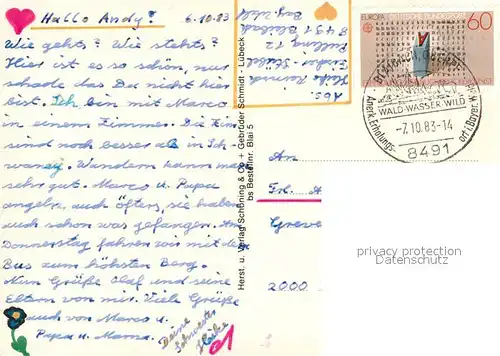 Hallo Andy! 6.10.83
Wie gehts? Wie stehts?
Hier ist es so schön, nur
schade das Du nicht hier
bist. Ich bin mit Marco
in einem Zimmer. Die
sind noch besser als in
Wandern kann man
sehr gut. Marco u. Papa
angeln auch öfters, sie haben
auch schon was gefangen. Am
Donnerstag fahren wir mit dem
Bus zum höchsten Berg.
Nun Grüße Olaf und seine
Eltern von mir. Viele Grüße
auch von Marco u.
Papa u. Mama.
Deine
Schwester
Heike
Herst. u. Verlag Schöning & Co + Gebrüder Schmidt - Lübeck
bs Bestellnr. Blai 5
Abs.
Heike
8491
Bay. Wald
EUROPA DEUTSCHE BUNDESPOST 60
WALD-WASSER-WILD
-7.10.83-14
Anerk. Erholungsort i. Bayer. W
8491
An
Frl. A
Greve
2000
privacy protection
Datenschutz